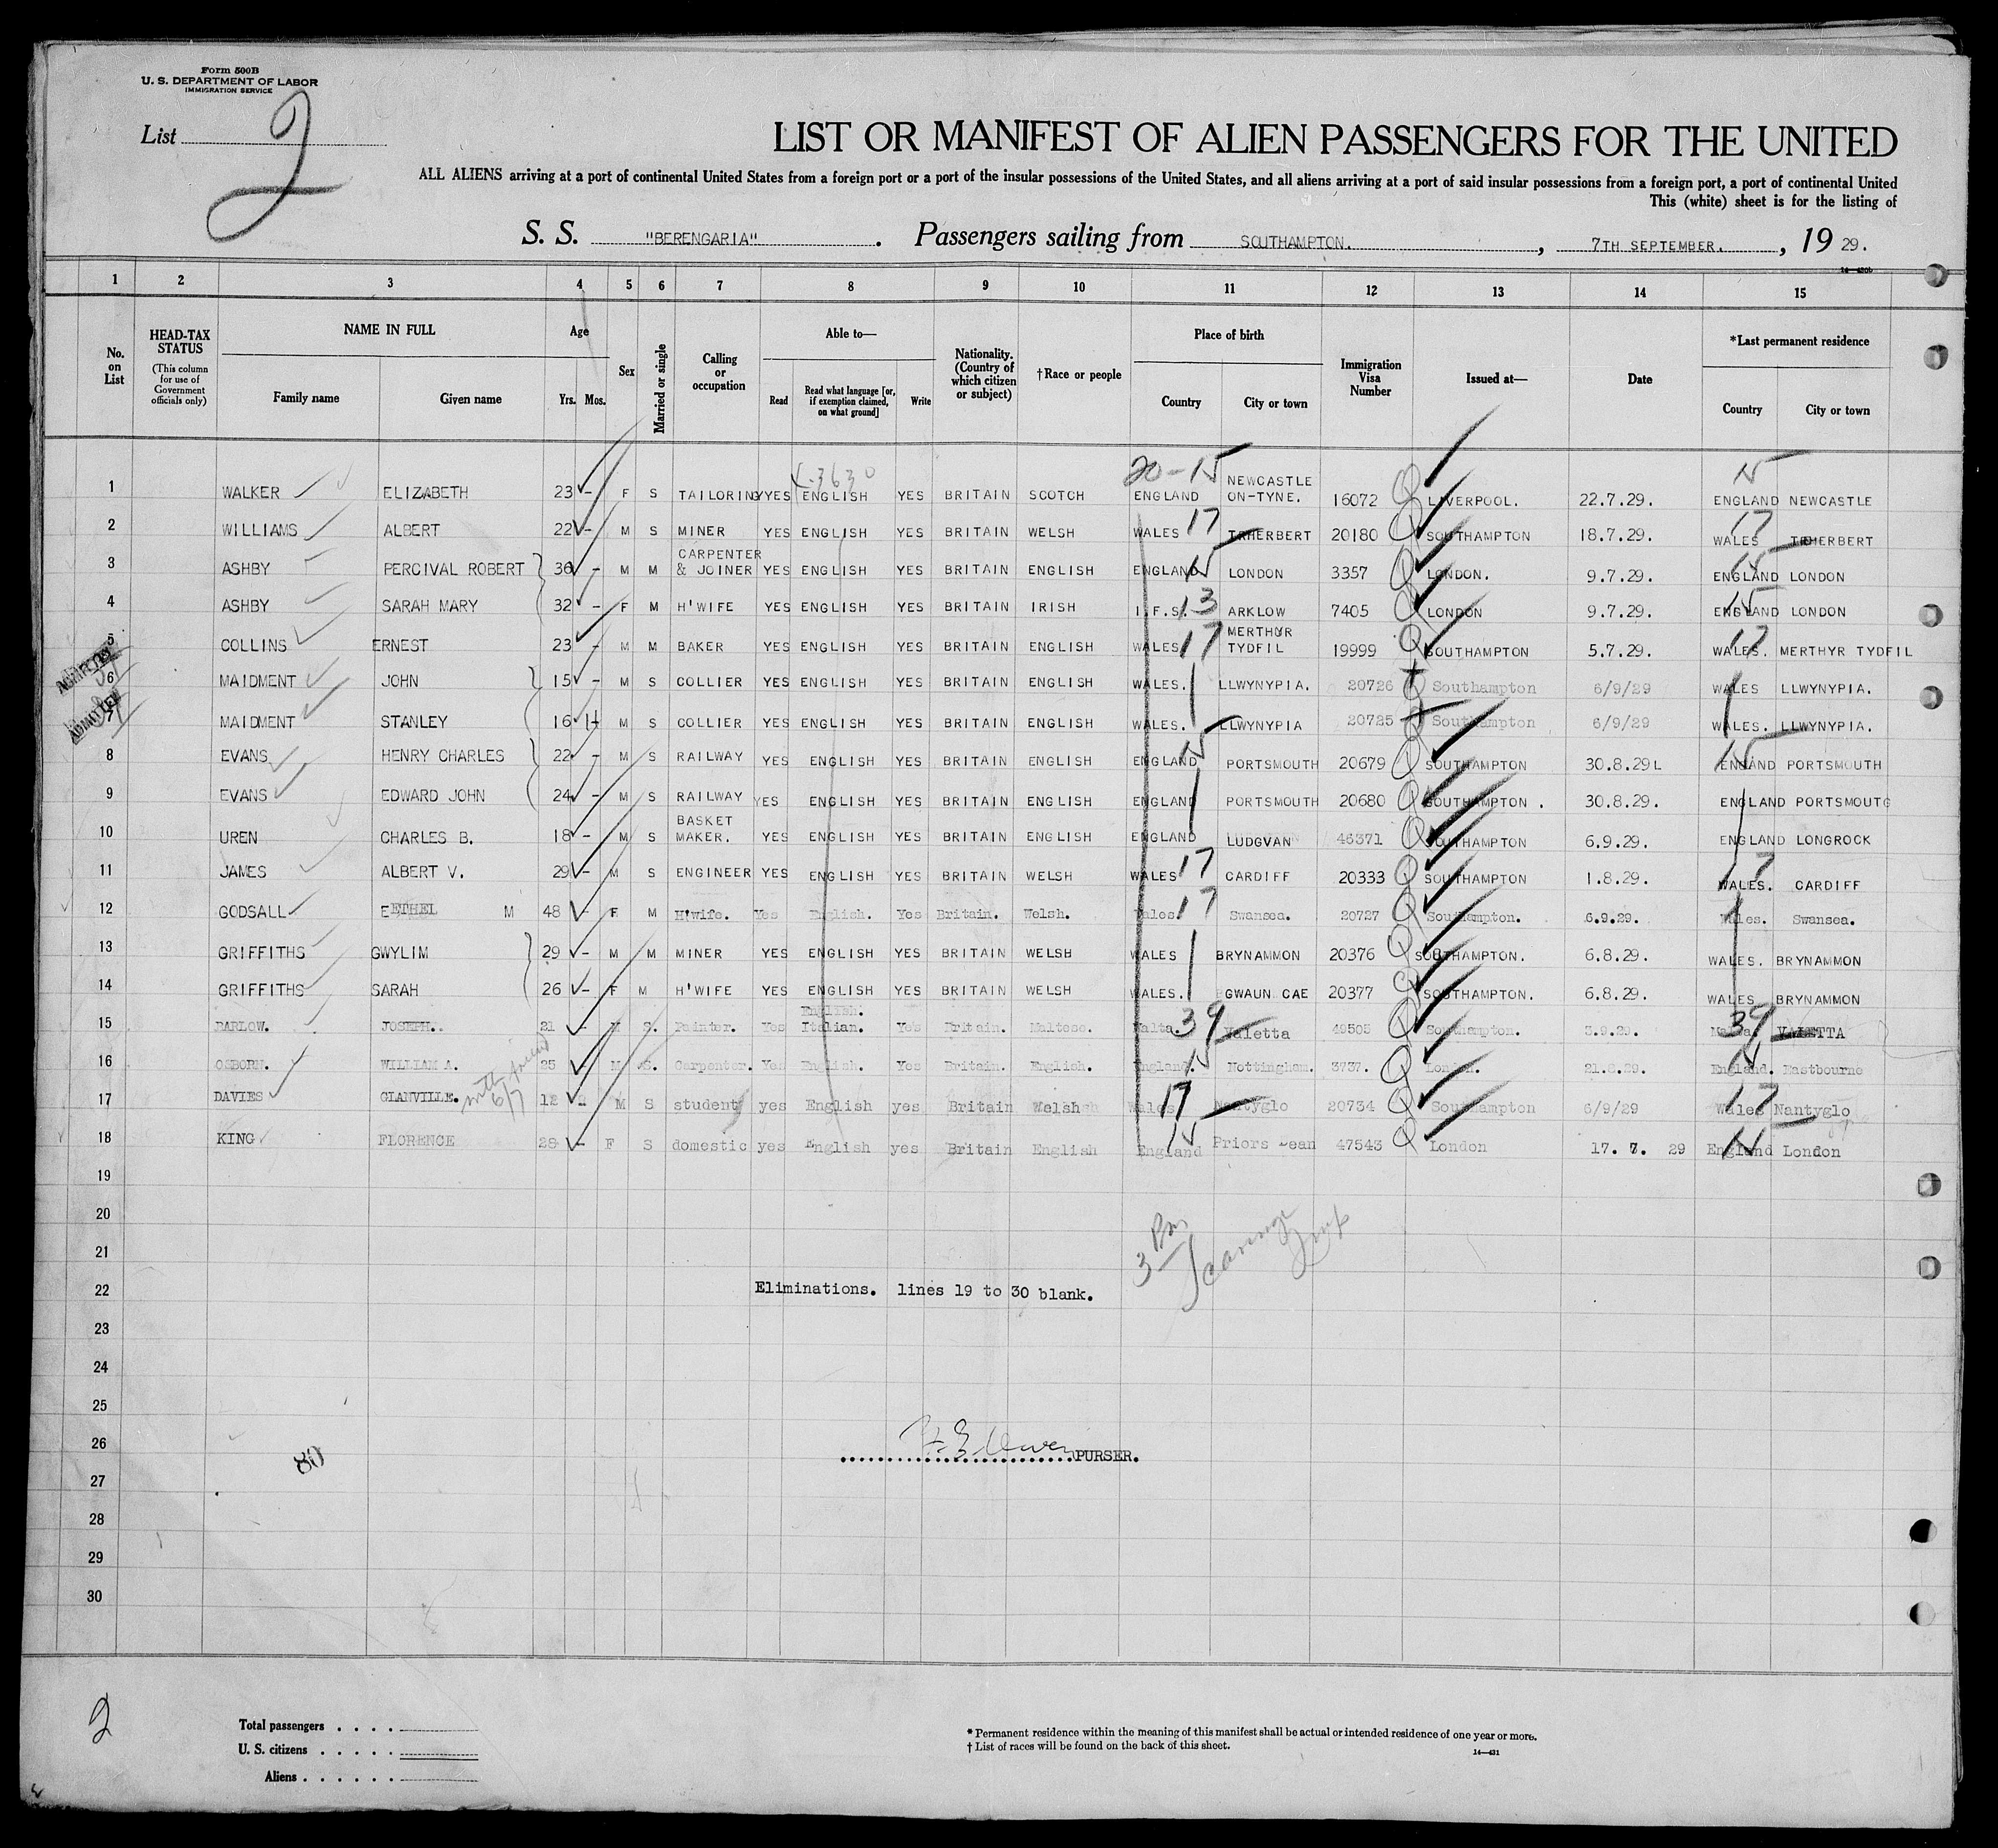 Form 500B
U. S. DEPARTMENT OF LABOR
IMMIGRATION SERVICE
List 2
LIST OR MANIFEST OF ALIEN PASSENGERS FOR THE UNITED
ALL ALIENS arriving at a port of continental United States from a foreign port or a port of the insular possessions of the United States, and all aliens arriving at a port of said insular possessions from a foreign port, a port of continental United
This (white) sheet is for the listing of
S. S. "BERENGARIA". Passengers sailing from SOUTHAMPTON., 7TH SEPTEMBER., 19 29.
1 2 3 4 5 6 7 8 9 10 11 12 13 14 15
No. on List
HEAD-TAX STATUS
(This column for use of Government officials only)
NAME IN FULL
Family name Given name
Age
Yrs. Mos.
Sex
Married or single
Calling or occupation
Able to—
Read
Read what language [or, if exemption claimed, on what ground]
Write
Nationality. (Country of which citizen or subject)
†Race or people
Place of birth
Country City or town
Immigration Visa Number
Issued at—
Date
*Last permanent residence
Country City or town
20-15 15
1 WALKER ELIZABETH 23 - F S TAILORING YES ENGLISH YES BRITAIN SCOTCH ENGLAND NEWCASTLE ON-TYNE. 16072 LIVERPOOL. 22.7.29. ENGLAND NEWCASTLE
2 WILLIAMS ALBERT 22 - M S MINER YES ENGLISH YES BRITAIN WELSH WALES 17 TREHERBERT 20180 SOUTHAMPTON 18.7.29. WALES 17 TREHERBERT
3 ASHBY PERCIVAL ROBERT 36 - M M CARPENTER & JOINER YES ENGLISH YES BRITAIN ENGLISH ENGLAND 15 LONDON 3357 LONDON. 9.7.29. ENGLAND 15 LONDON
4 ASHBY SARAH MARY 32 - F M H'WIFE YES ENGLISH YES BRITAIN IRISH I.F.S. 13 ARKLOW 7405 LONDON 9.7.29. ENGLAND 15 LONDON
5 COLLINS ERNEST 23 - M M BAKER YES ENGLISH YES BRITAIN ENGLISH WALES 17 MERTHYR TYDFIL 19999 SOUTHAMPTON 5.7.29. WALES. 17 MERTHYR TYDFIL
ADMITTED
6 MAIDMENT JOHN 15 - M S COLLIER YES ENGLISH YES BRITAIN ENGLISH WALES. LLWYNYPIA. 20726 Southampton 6/9/29 WALES LLWYNYPIA.
ADMITTED
7 MAIDMENT STANLEY 16 M S COLLIER YES ENGLISH YES BRITAIN ENGLISH WALES. LLWYNYPIA 20725 Southampton 6/9/29 WALES. LLWYNYPIA.
8 EVANS HENRY CHARLES 22 - M S RAILWAY YES ENGLISH YES BRITAIN ENGLISH ENGLAND 15 PORTSMOUTH 20679 SOUTHAMPTON 30.8.29L ENGAND 15 PORTSMOUTH
9 EVANS EDWARD JOHN 24 - M S RAILWAY YES ENGLISH YES BRITAIN ENGLISH ENGLAND PORTSMOUTH 20680 SOUTHAMPTON . 30.8.29. ENGLAND PORTSMOUTG
10 UREN CHARLES B. 18 - M S BASKET MAKER. YES ENGLISH YES BRITAIN ENGLISH ENGLAND LUDGVAN 46371 SOUTHAMPTON 6.9.29. ENGLAND LONGROCK
11 JAMES ALBERT V. 29 - M S ENGINEER YES ENGLISH YES BRITAIN WELSH WALES 17 CARDIFF 20333 SOUTHAMPTON 1.8.29. WALES. 17 CARDIFF
12 GODSALL ETHEL M 48 - F M H'wife. Yes English. Yes Britain. Welsh. Wales 17 Swansea. 20727 Southampton. 6.9.29. Wales. Swansea.
13 GRIFFITHS GWYLIM 29 - M M MINER YES ENGLISH YES BRITAIN WELSH WALES BRYNAMMON 20376 SOUTHAMPTON. 6.8.29. WALES. BRYNAMMON
14 GRIFFITHS SARAH 26 - F M H'WIFE YES ENGLISH YES BRITAIN WELSH WALES. GWAUN CAE 20377 SOUTHAMPTON. 6.8.29. WALES BRYNAMMON
15 JOSEPH. 21 - M S. Painter. Yes English. Italian. Yes Britain. Maltese. Malta. 39 Valetta 49505 Southampton. 3.9.29. Malta 39 VALETTA
16 OSBORN. WILLIAM A. 25 - M S. Carpenter. Yes English. Yes Britain. English. England. 15 Nottingham. 3737. London. 21.8.29. England. 15 Eastbourne
17 DAVIES GLANVILLE. with friend 6/7 12 - M S student yes English yes Britain Welsh Wales 17 Nantyglo 20734 Southampton 6/9/29 Wales 17 Nantyglo
18 KING FLORENCE 28 - F S domestic yes English yes Britain English England 15 Priors Dean 47543 London 17. 7. 29 England 15 London
19
20
21
3 Pm
22 Eliminations. lines 19 to 30 blank.
23
24
25
26 PURSER.
80
27
28
29
30
2
Total passengers . . . .
U. S. citizens . . . . .
Aliens . . . . . .
* Permanent residence within the meaning of this manifest shall be actual or intended residence of one year or more.
† List of races will be found on the back of this sheet.
14—431